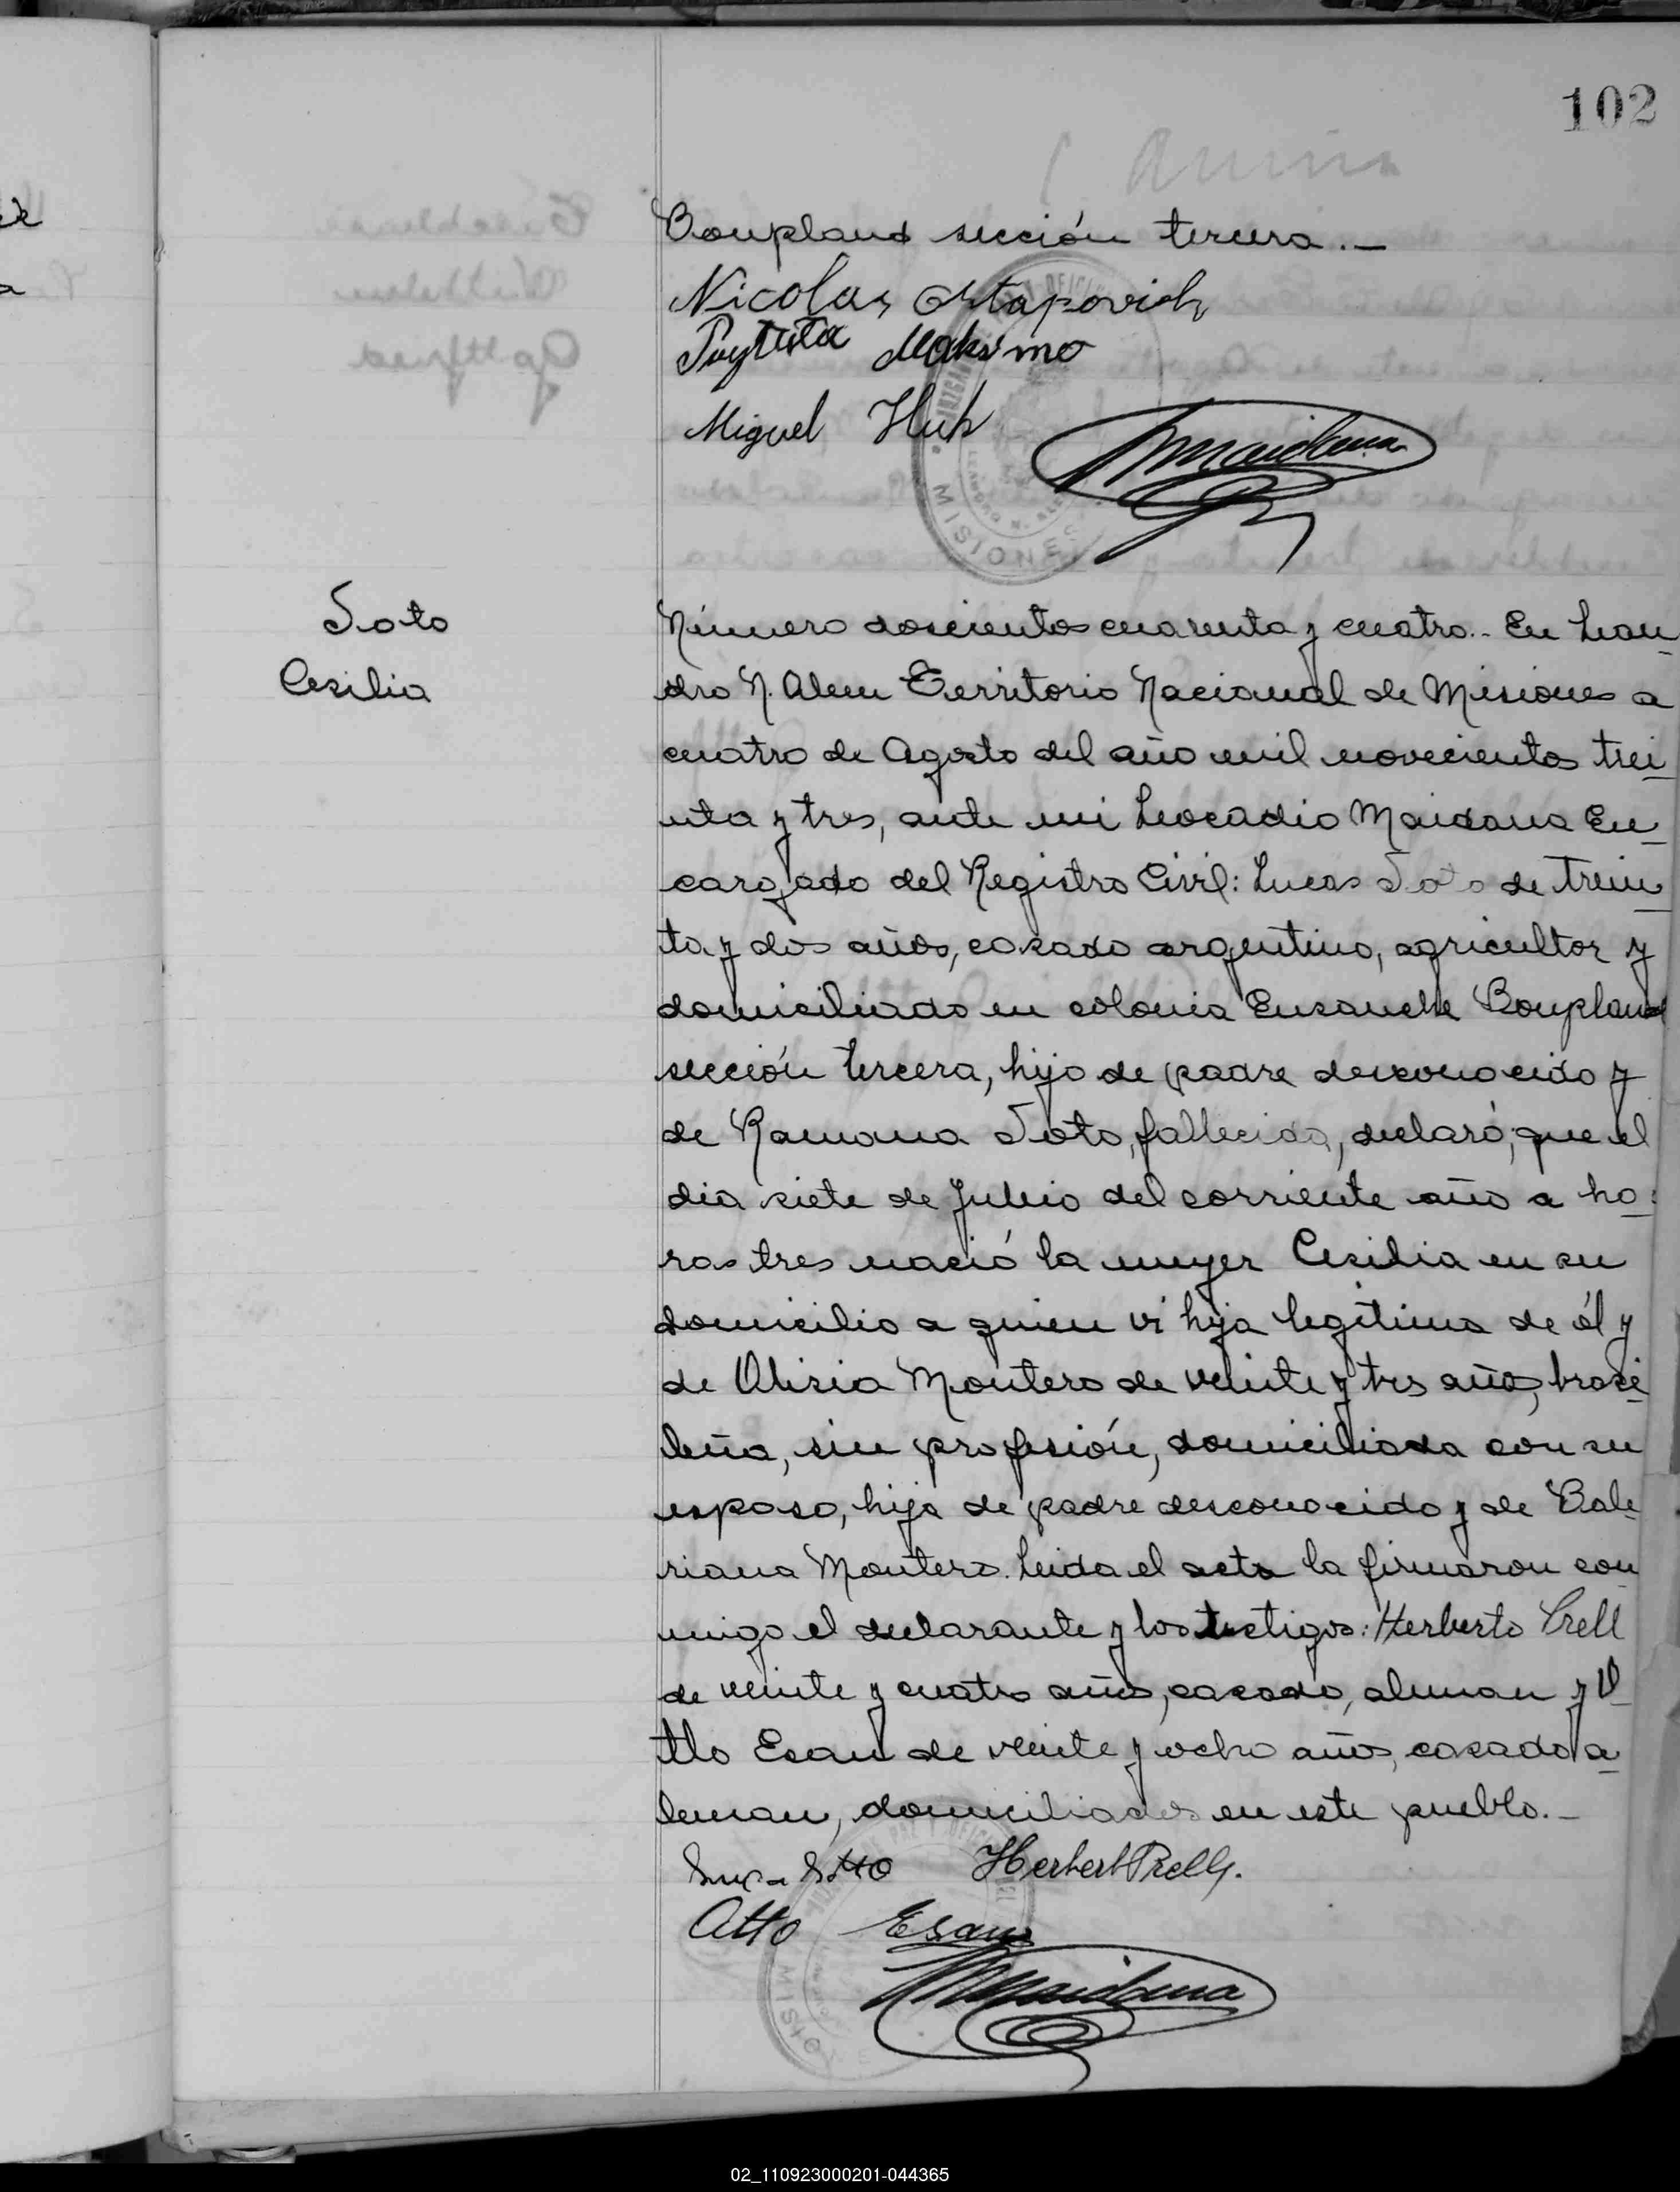 102
Bonpland sección tercera.—
Nicolas Ostapovich
Maksimo
Miguel Huk
MISIONES
Soto
Cesilia
Número doscientos cuarenta y cuatro.- En Lean-
dro N. Alem Territorio Nacional de Misiones a
cuatro de Agosto del año mil novecientos trei-
nta y tres, ante mi Leocadio Maidana En-
cargado del Registro Civil: Lucas Soto de trein-
ta y dos años, casado argentino, agricultor y
domiciliado en colonia Ensanche Bonpland
sección tercera, hijo de padre desconocido y
de Ramona Soto, fallecida, declaró; que el
dia siete de Julio del corriente año a ho-
ras tres nació la mujer Cesilia en su
domicilio a quien vi hija legítima de él y
de Alisia Montero de veinte y tres años, brasi-
leña, sin profesión, domiciliada con su
esposo, hija de padre desconocido y de Bale-
riana Montero. Leida el acta la firmaron con
migo el declarante y los testigos: Herberto Prell
de veinte y cuatro años, casado, aleman y O-
tto Esau de veinte y ocho años, casado a-
leman, domiciliados en este pueblo.—
Herbert Prell.
Otto Esau
Maidana
02_110923000201-044365